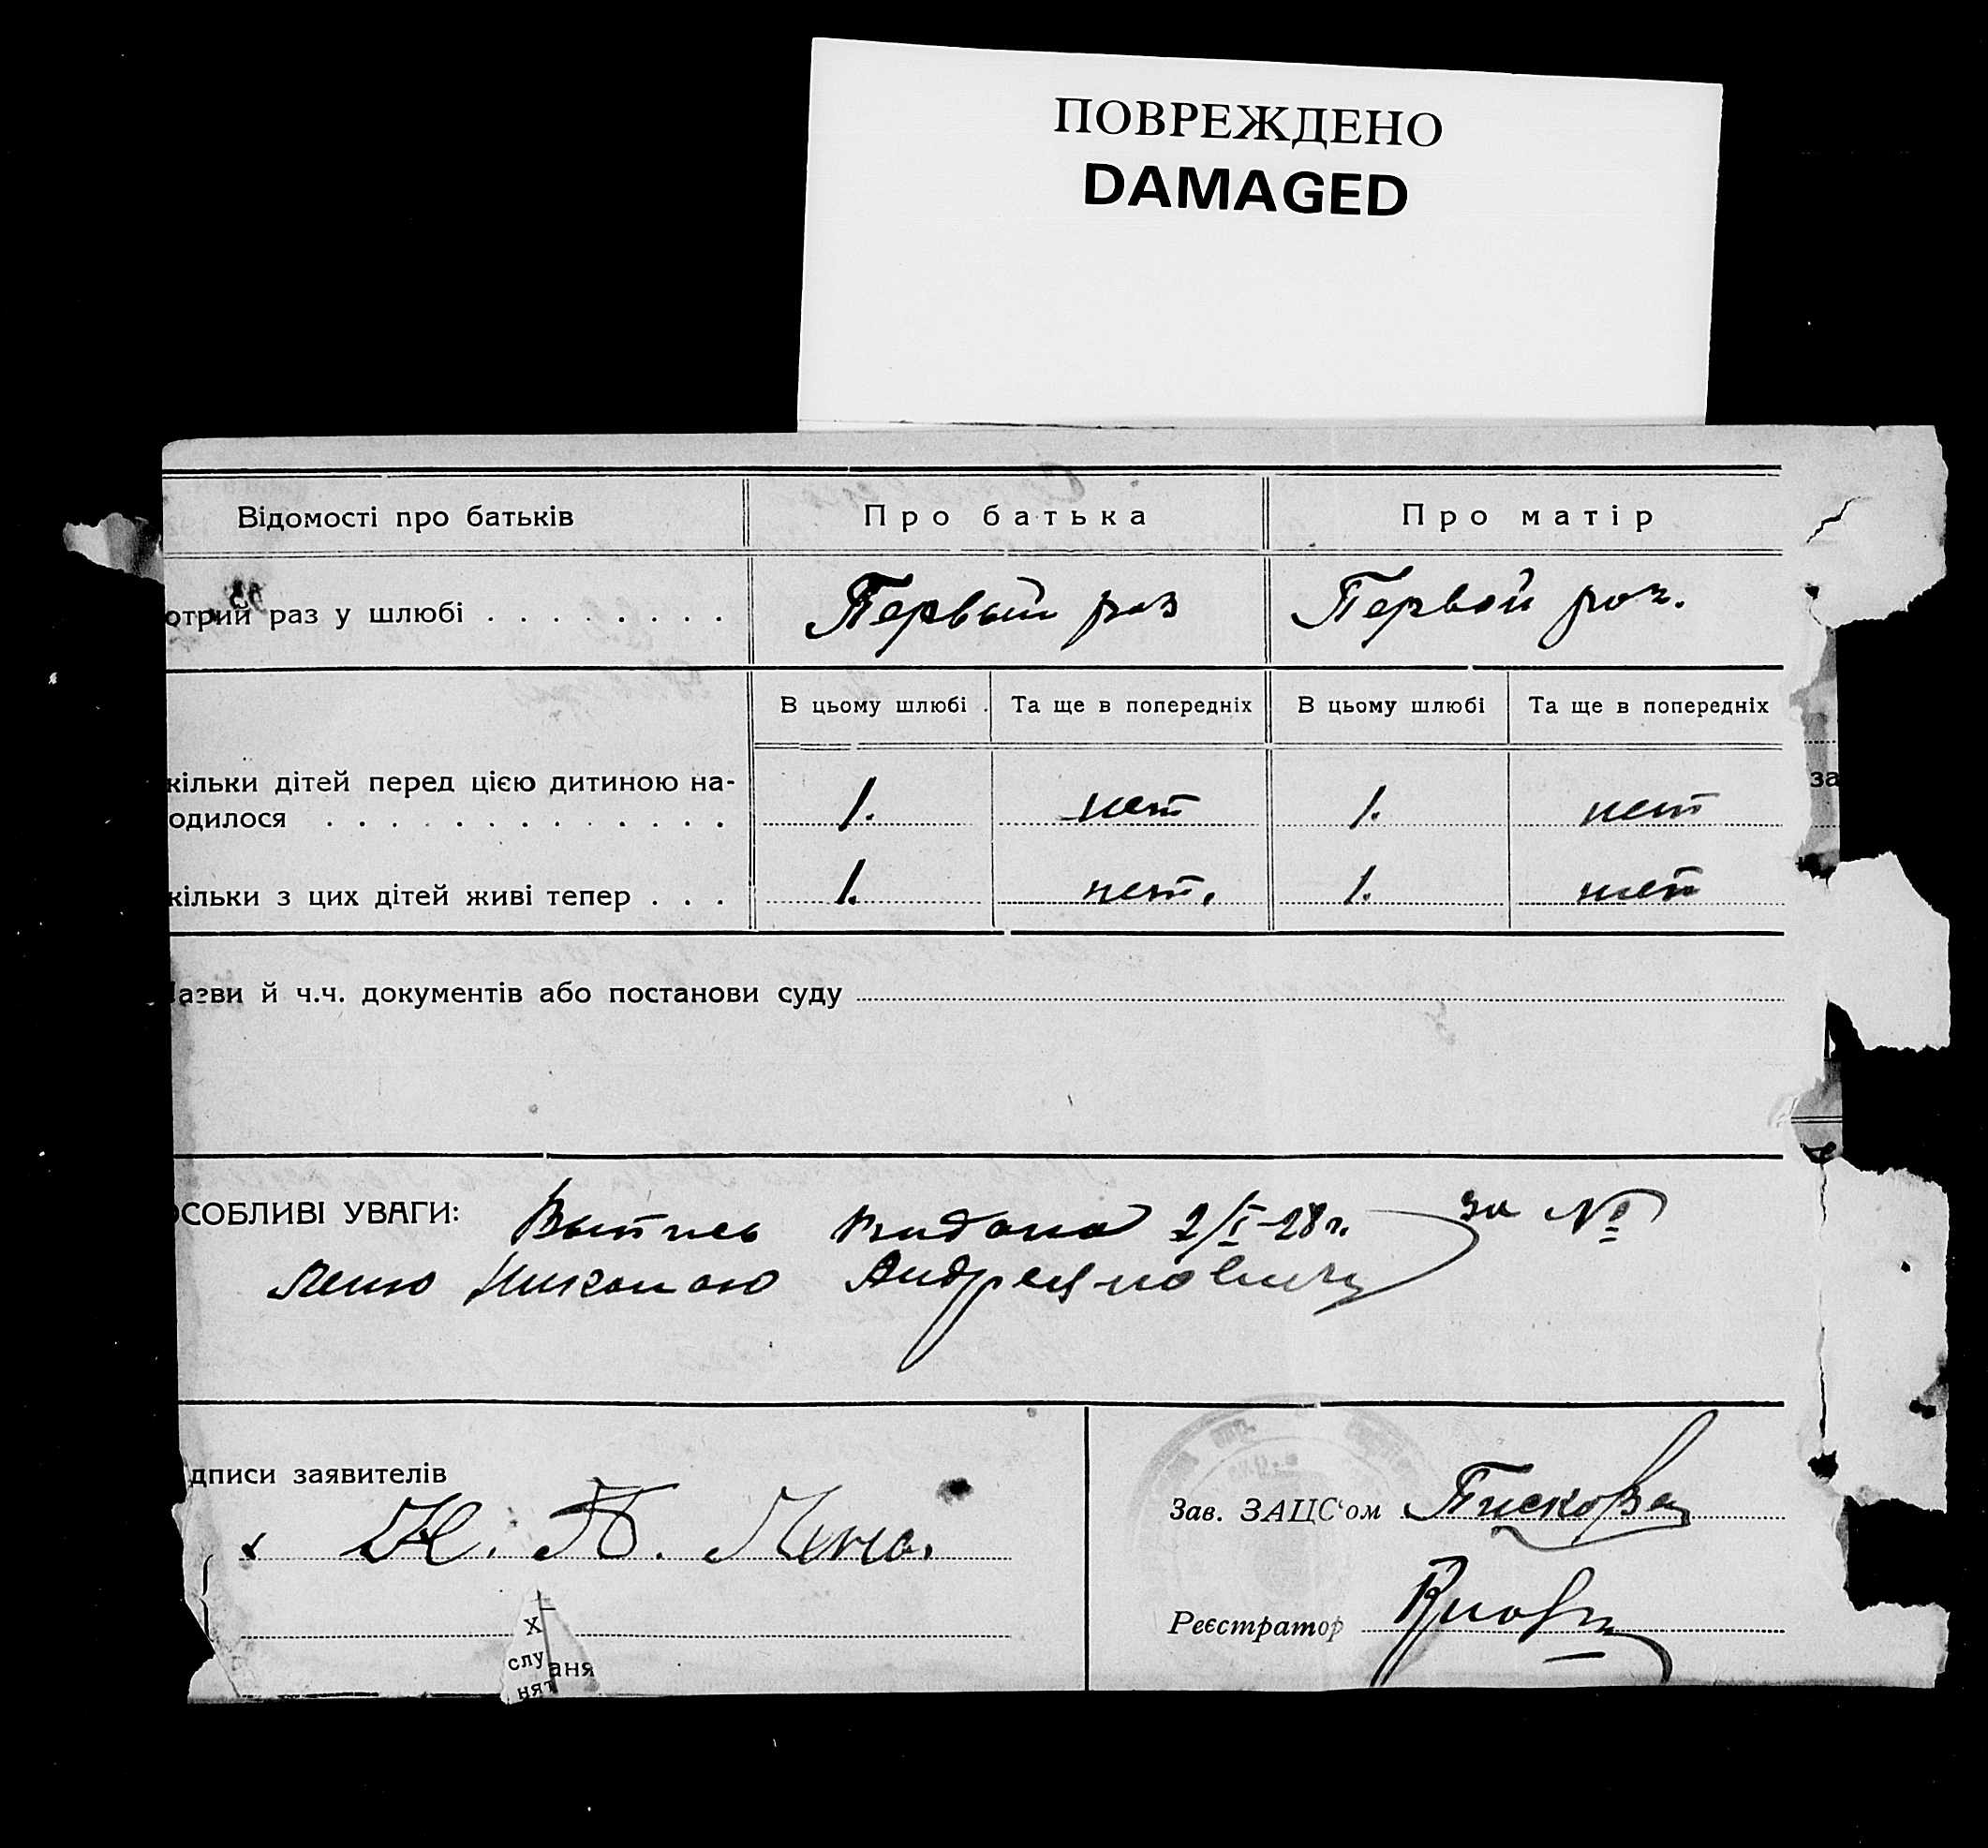 ПОВРЕЖДЕНО
DAMAGED
Відомості про батьків
Про батька
Про матір
отрий раз у шлюбі . . . . . . . .
Первый раз
Первой раз.
В цьому шлюбі
Та ще в попередніх
В цьому шлюбі
Та ще в попередніх
кільки дітей перед цією дитиною на-
одилося . . . . . . . . . . . . .
1.
нет
1.
нет
за
кільки з цих дітей живі тепер . . .
1.
нет.
1.
нет
азви й ч.ч. документів або постанови суду
ОСОБЛИВІ УВАГИ: Выпись видана 2/I-28 г. за №
Николаю
дписи заявителів
Зав. ЗАЦС'ом
Реєстратор
Х
слу аня
нят